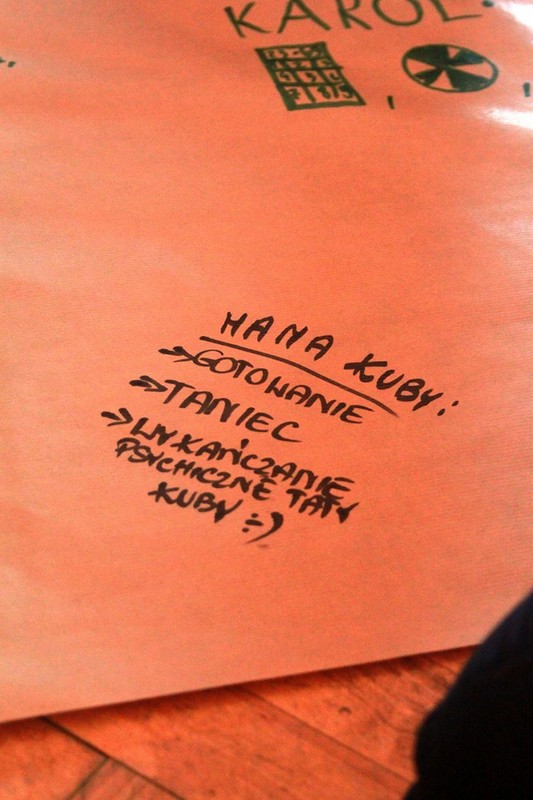 KAROL:
MAMA KUBY:
→GOTOWANIE
→TANIEC
→WYKAŃCZANIE
PSYCHICZNE TATY
KUBY :-)